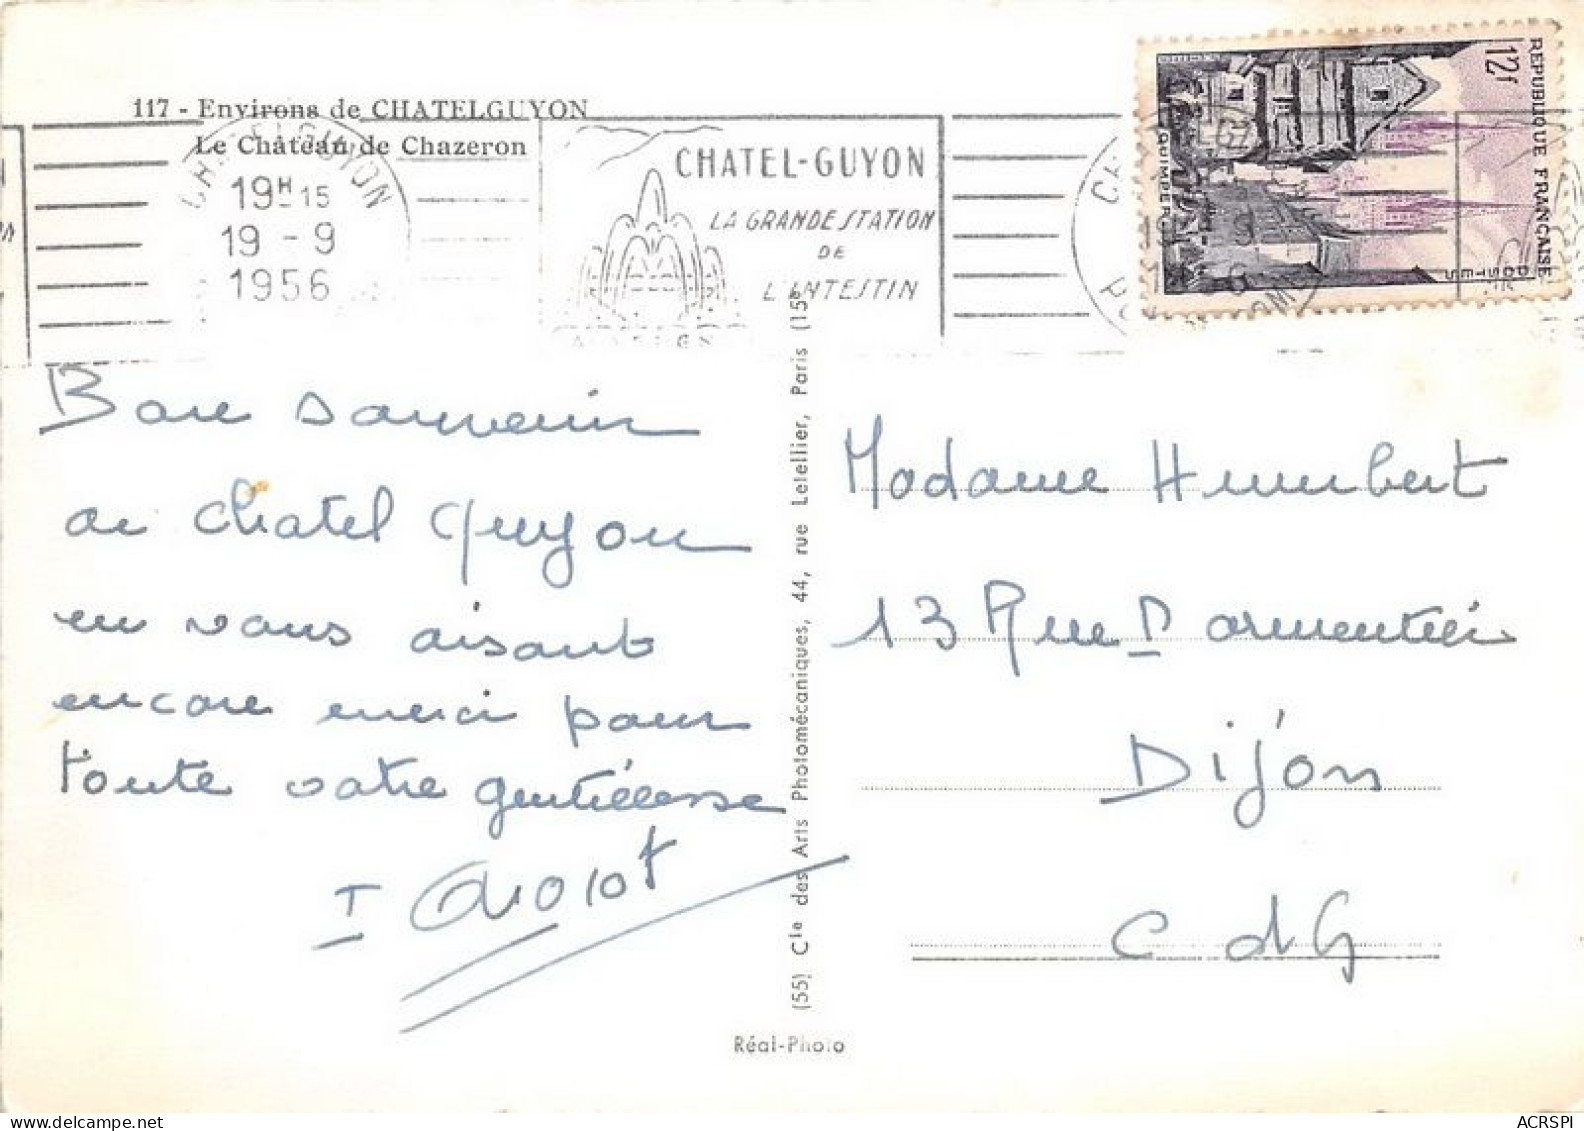 117 - Environs de CHATELGUYON
Le Château de Chazeron
CHATELGUYON
19H15
19 - 9
1956
CHATEL-GUYON
LA GRANDE STATION
DE
L'INTESTIN
REPUBLIQUE FRANÇAISE
12f
POSTES
QUIMPER
Bon souvenir
de Chatel Guyon
en vous disant
encore merci pour
toute votre gentillesse
Madame Humbert
13 Rue Parmentier
Dijon
C d'G
(55) Cie des Arts Photomécaniques, 44, rue Letellier, Paris (15e
Réal-Photo
ACRSPI